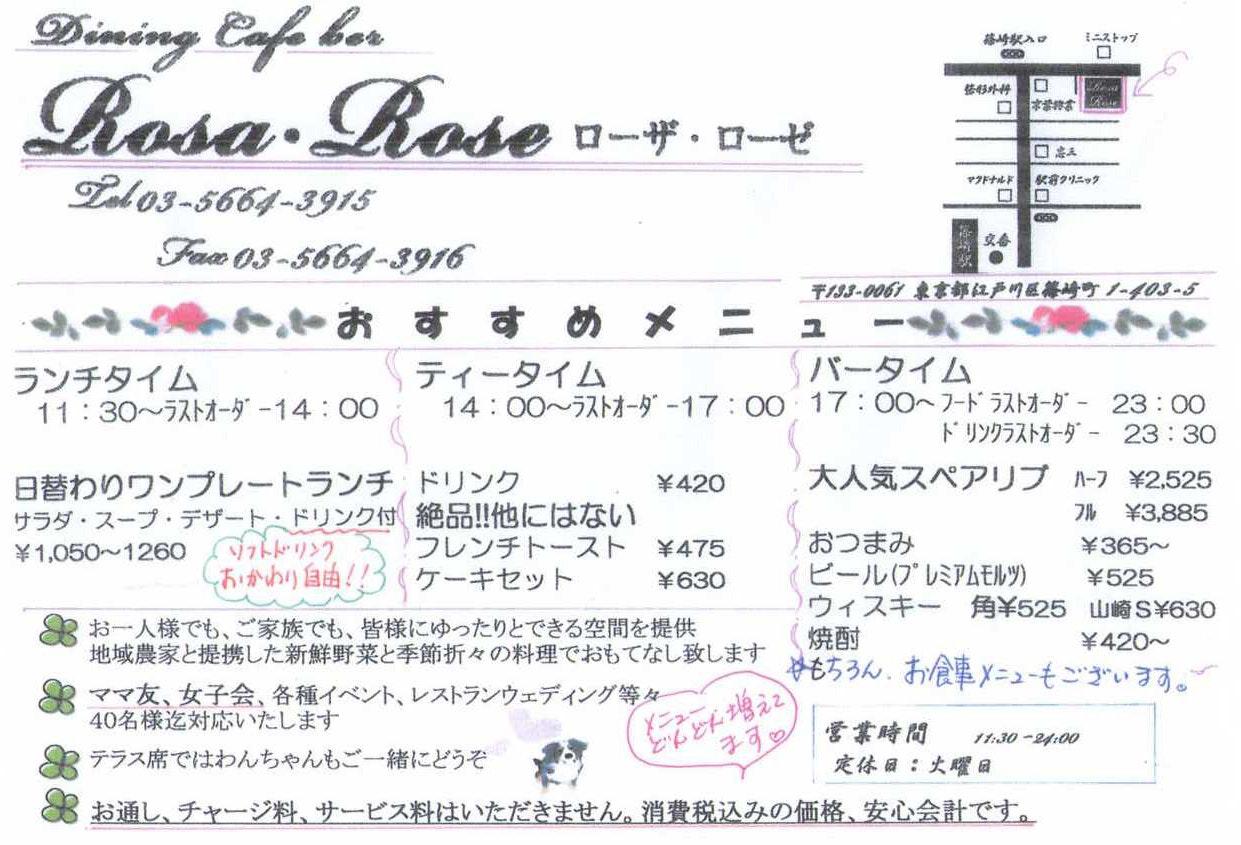 Dining Cafe ber
Rosa・Rose ローザ・ローゼ
Tel 03-5664-3915
Fax 03-5664-3916
篠崎駅入口
ミニストップ
整形外科
Rosa
Rose
マクドナルド
駅前クリニック
篠崎駅
交番
〒133-0061 東京都江戸川区篠崎町 1-403-5
おすすめメニュー
ランチタイム
11：30～ラストオーダー14：00
日替わりワンプレートランチ
サラダ・スープ・デザート・ドリンク付
¥1,050～1260
ソフトドリンク
おかわり自由!!
ティータイム
14：00～ラストオーダー17：00
ドリンク ¥420
絶品!!他にはない
フレンチトースト ¥475
ケーキセット ¥630
バータイム
17：00～フードラストオーダー 23：00
ドリンクラストオーダー 23：30
大人気スペアリブ ハーフ ¥2,525
フル ¥3,885
おつまみ ¥365～
ビール(プレミアムモルツ) ¥525
ウィスキー 角¥525 山崎S¥630
焼酎 ¥420～
もちろん、お食事メニューもございます。
お一人様でも、ご家族でも、皆様にゆったりとできる空間を提供
地域農家と提携した新鮮野菜と季節折々の料理でおもてなし致します
ママ友、女子会、各種イベント、レストランウェディング等々
40名様迄対応いたします
テラス席ではわんちゃんもご一緒にどうぞ
お通し、チャージ料、サービス料はいただきません。消費税込みの価格、安心会計です。
メニュー
どんどん増えて
ます♡
営業時間 11:30-24:00
定休日：火曜日